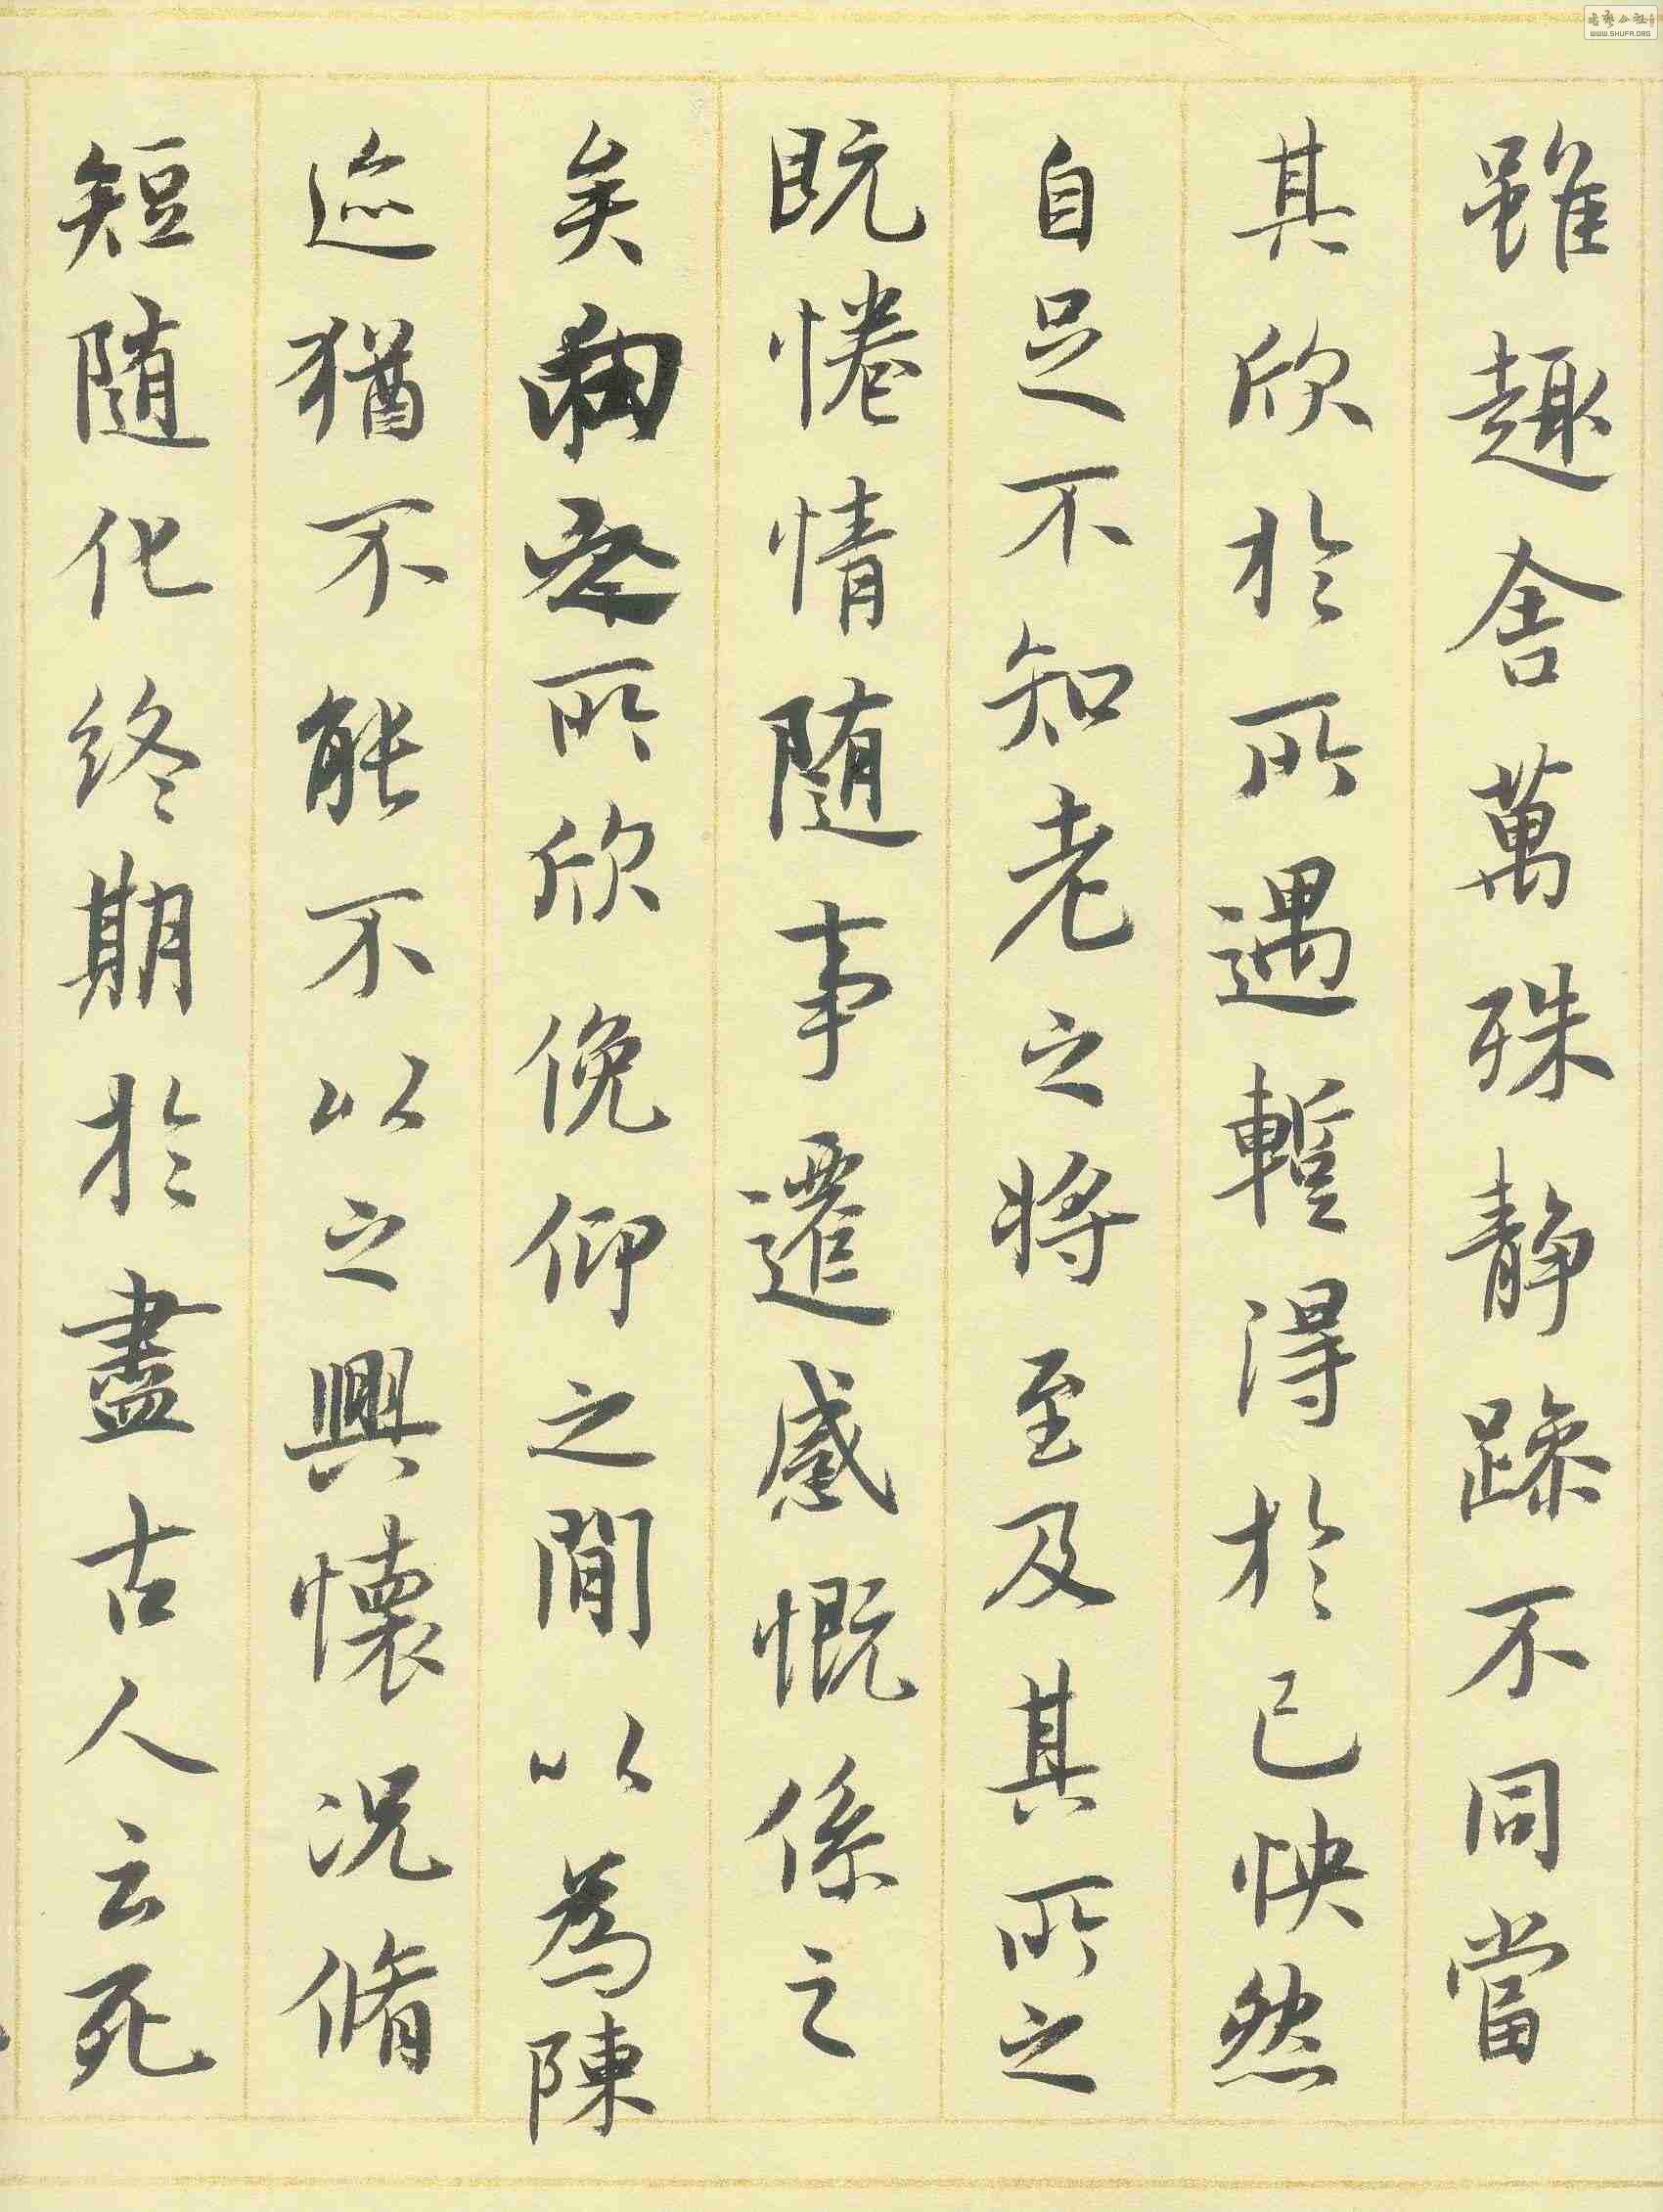 雖趣舍萬殊静躁不同當
其欣於所遇蹔得於己怏然
自足不知老之将至及其所之
既惓情随事遷感慨係之
矣向之所欣俛仰之閒以為陳
迹猶不能不以之興懷况脩
短随化終期於盡古人云死
WWW.SHUFA.ORG